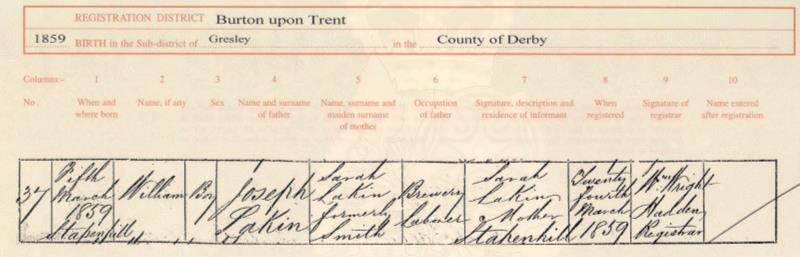 REGISTRATION DISTRICT Burton upon Trent
1859 BIRTH in the Sub-district of Gresley in the County of Derby
Columns:- 1 2 3 4 5 6 7 8 9 10
No. When and where born Name, if any Sex Name and surname of father Name, surname and maiden surname of mother Occupation of father Signature, description and residence of informant When registered Signature of registrar Name entered after registration
37
Fifth
March
1859
Stapenhill
William
Boy
Joseph
Lakin
Sarah
Lakin
formerly
Smith
Brewery
Labourer
Sarah
Lakin
Mother
Stapenhill
Twenty
fourth
March
1859
Wm Wright
Hadden
Registrar